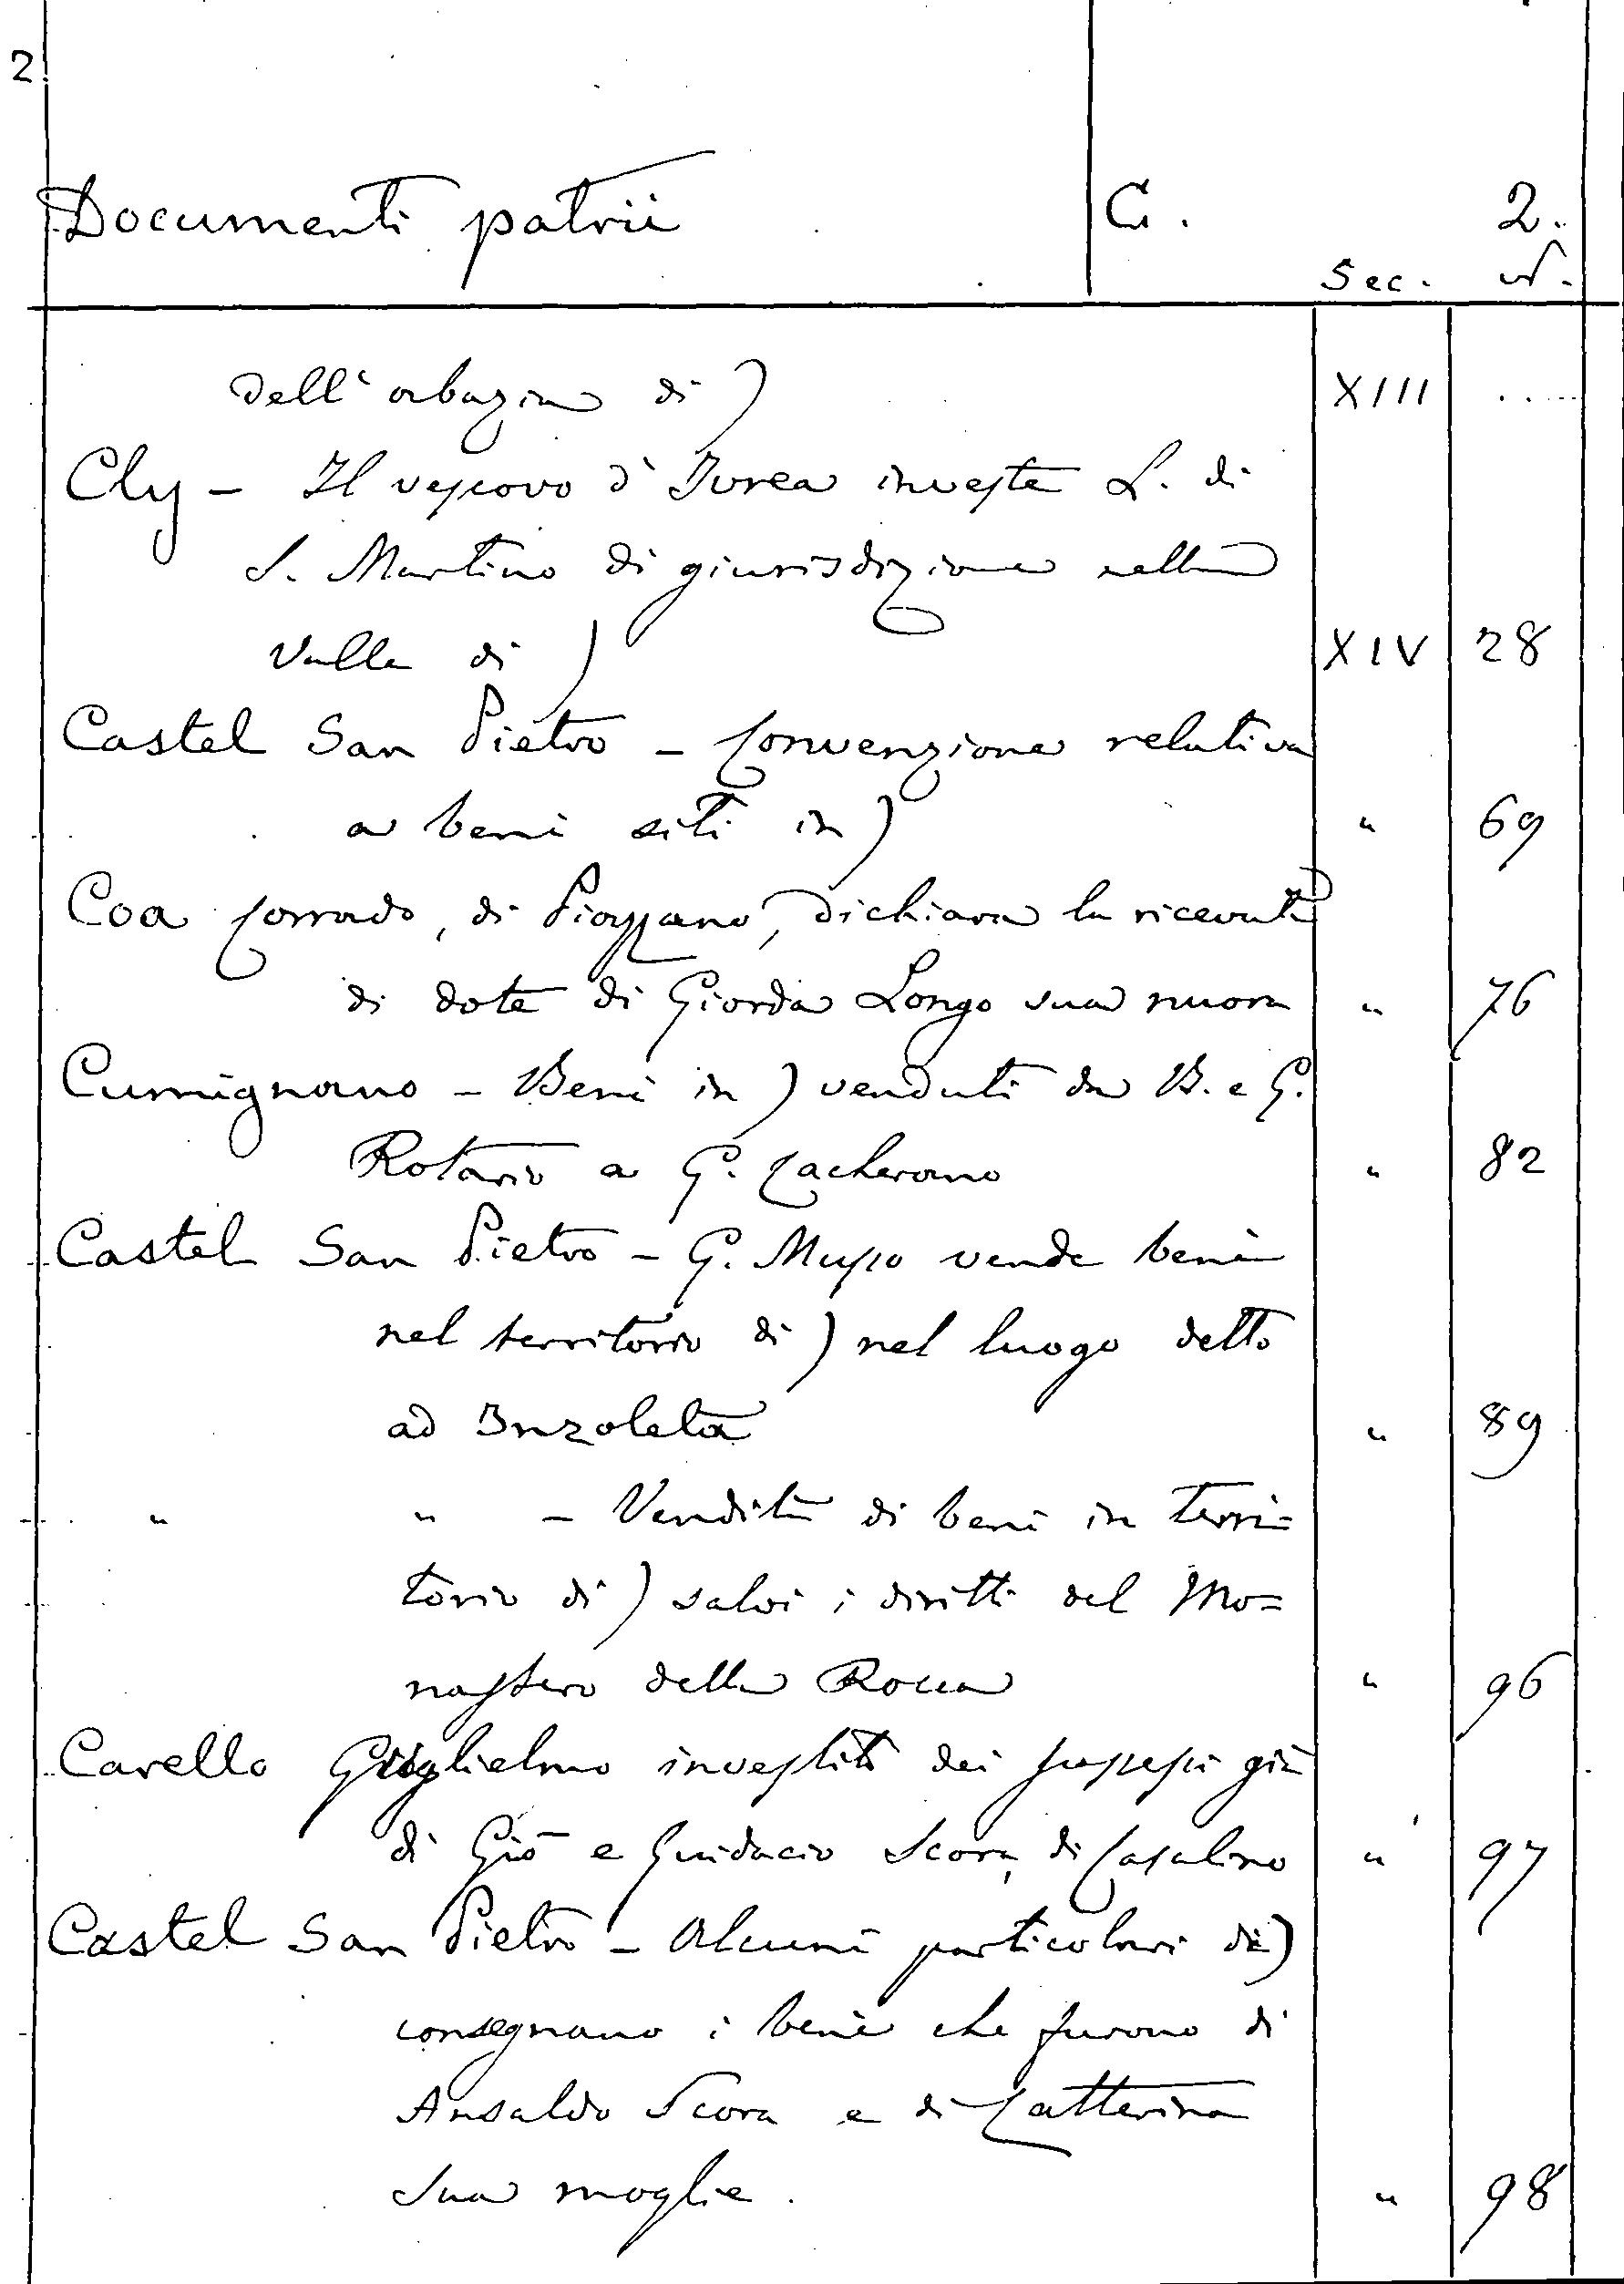 2
Documenti patrii C. 2.
Sec. N.
dell'abazia di) XIII .....
Cly - Il vescovo d'Ivrea investe L. di
S. Martino di giurisdizione nella
Valle di) XIV 28
Castel San Pietro - Convenzione relativa
a beni siti in) " 69
Coa Corrado, di Piazzano, dichiara la ricevuta
di dote di Giorda Longo sua nuora " 76
Cumignano - Beni in) venduti da B. e G.
Rotario a G. Cacherano " 82
Castel San Pietro - G. Musso vende beni
nel territorio di) nel luogo detto
ad Inzoleta " 89
" " - Vendita di beni in terri=
torio di) salvi i diritti del Mo=
nastero della Rocca " 96
Cavello Guglielmo investito dei possessi già
di Giō e Guidacio Scora, di Casalino " 97
Castel San Pietro - Alcuni particolari di)
consegnano i beni che furono di
Ansaldo Scora e di Catterina
sua moglie. " 98